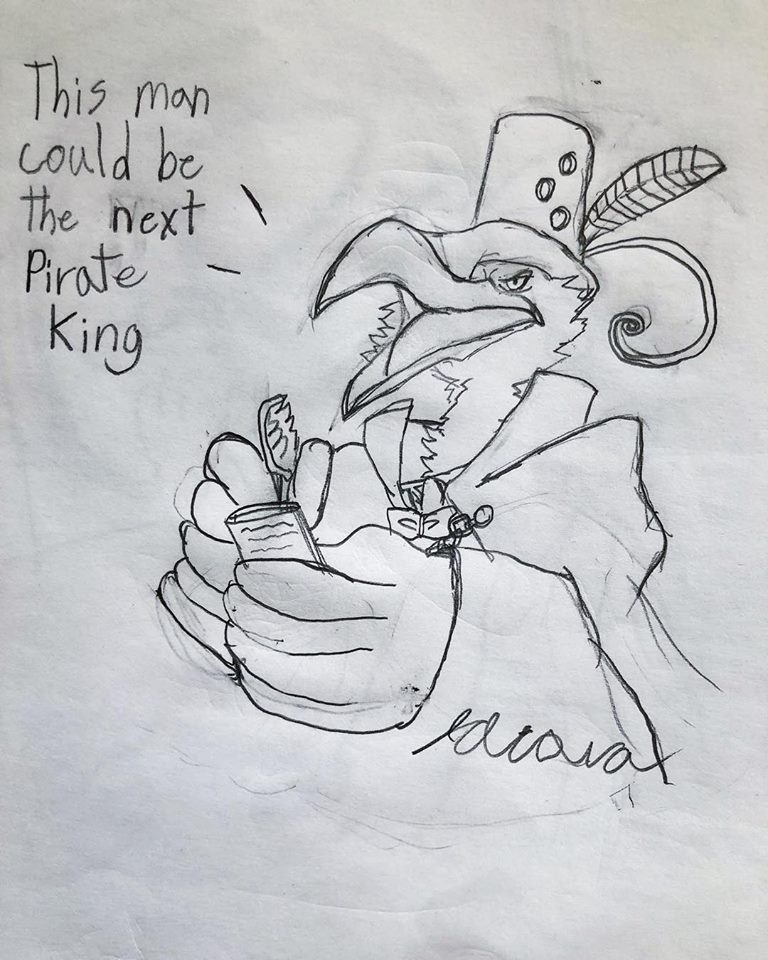 This man
could be
the next
Pirate
King